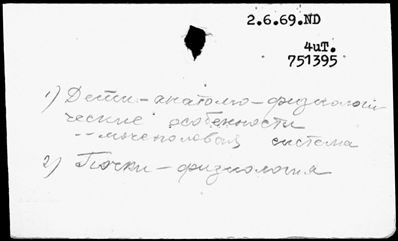 2.6.69.ND
4чт.
751395
1) Дети - анатомо-физиологи
ческие особенности
-- мочеполовая система
2) Почки - физиология